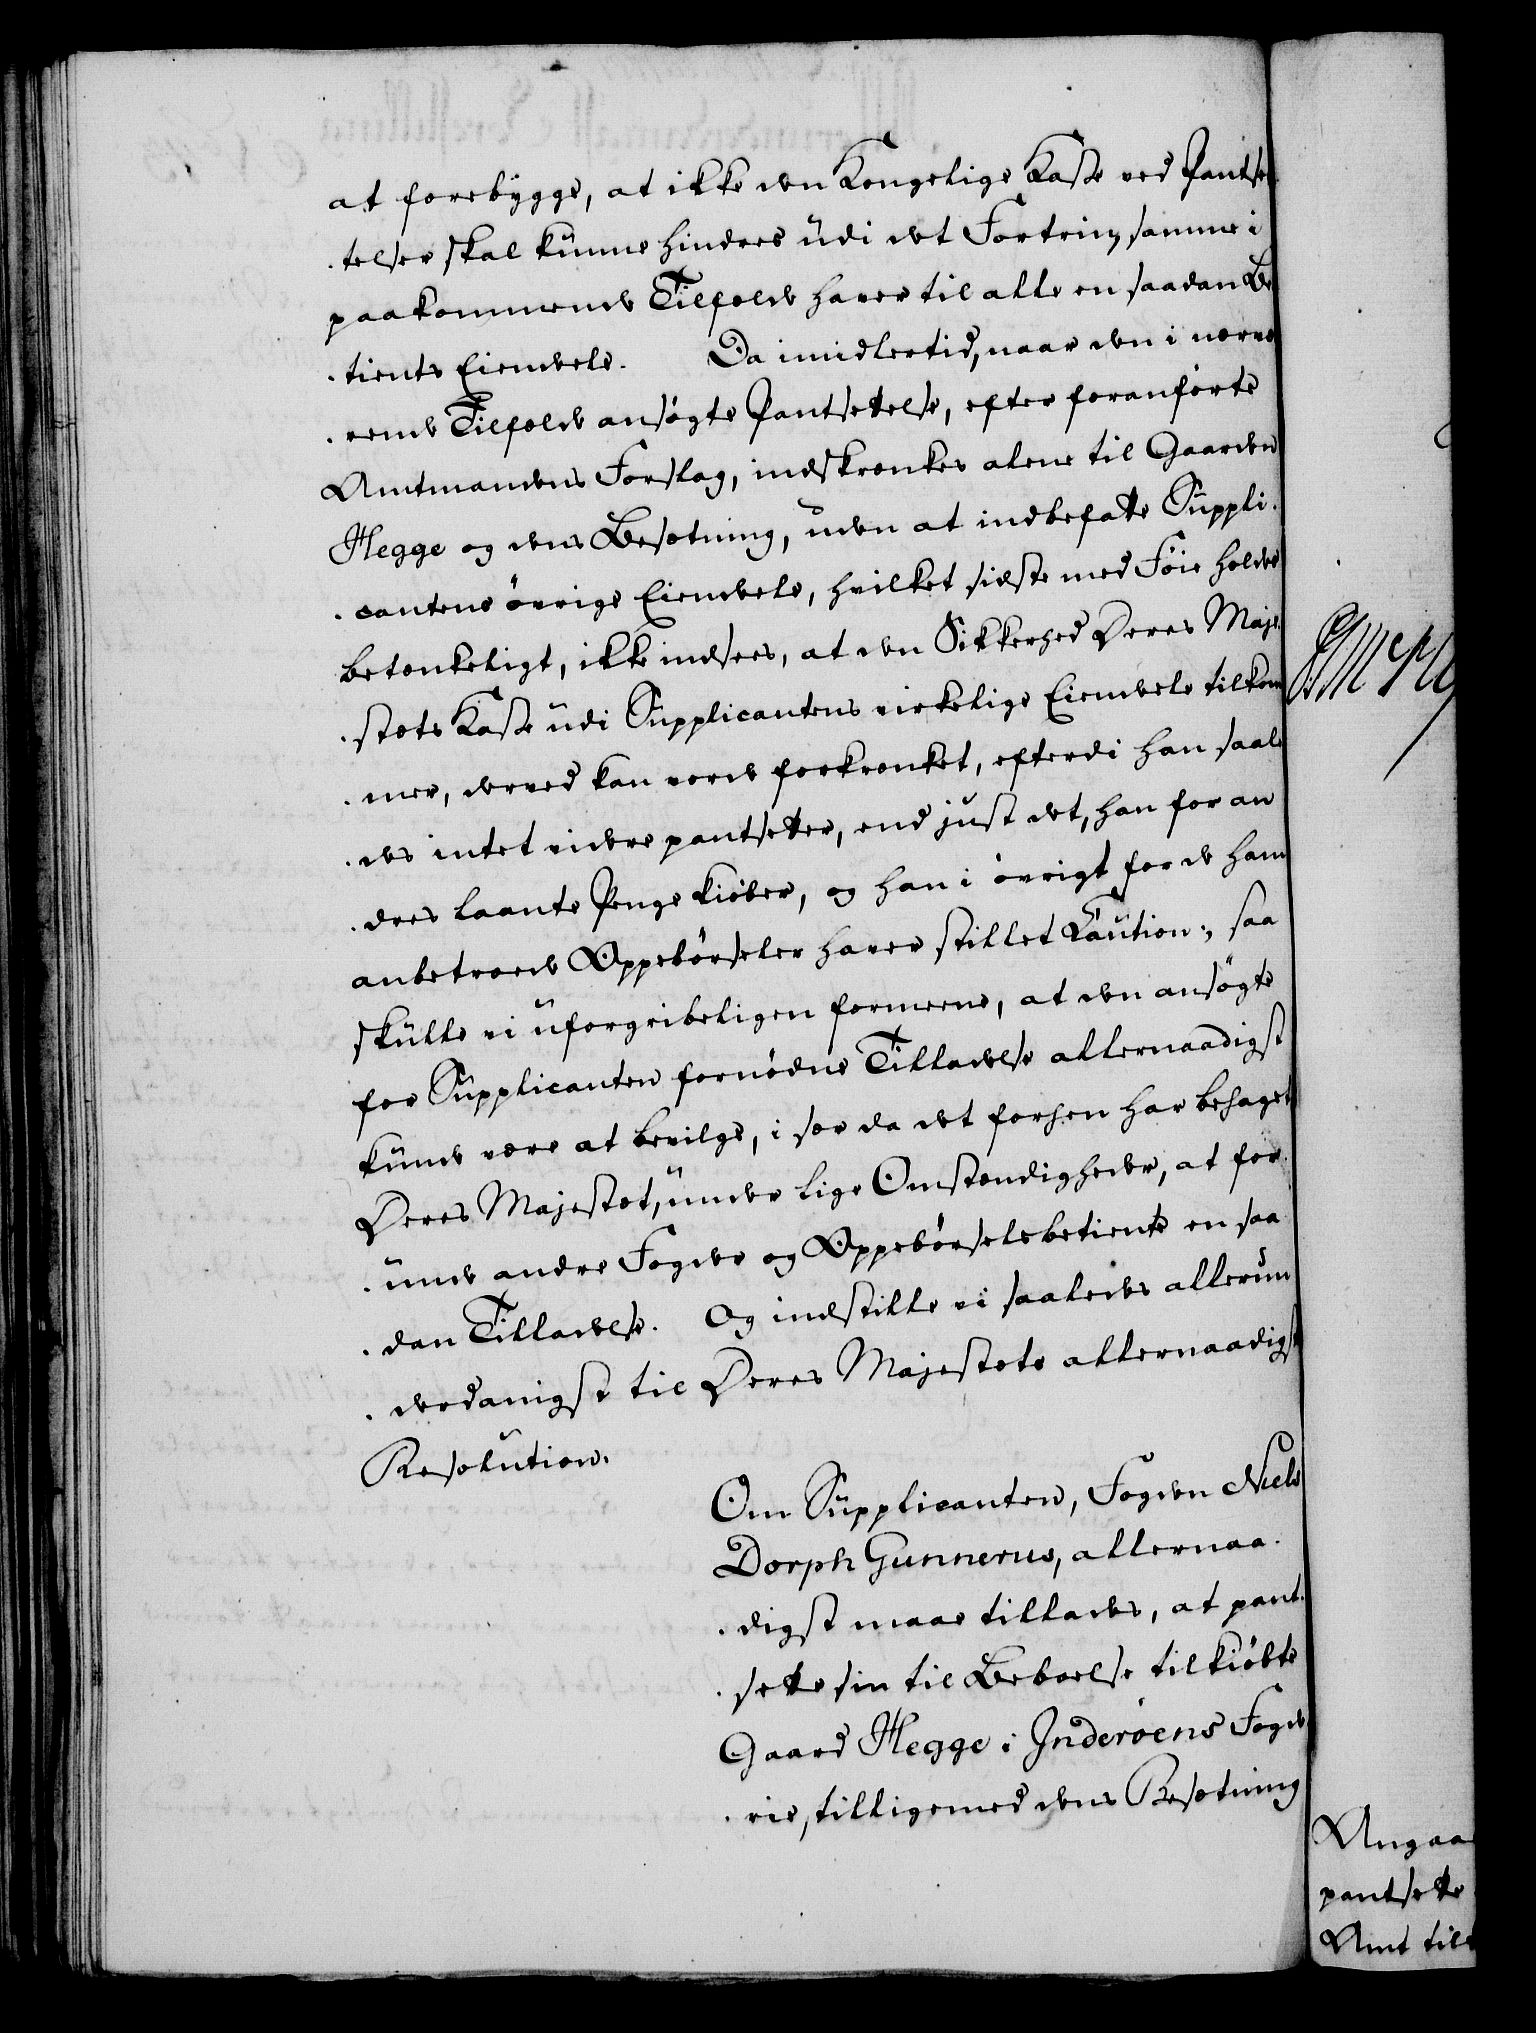 at forebygge, at ikke den Kongelige Kasse ved Pantse
telser skal kunne hindres udi det Fortrin, samme i
paakommende Tilfelde haver til alle en saadan Be
tients Eiendele. Da imidlertid, naar den i nærvæ
rende Tilfelde ansøgte Pantsettelse, efter foranførte
Amtmandens Forslag, indskrænkes alene til Gaarden
Hegge og dens Besætning, uden at indbefatte Suppli-
cantens øvrige Eiendele, hvilket sidste med Føie holdes
betænkeligt, ikke indsees, at den Sikkerhed Deres Maje-
stæts Kasse udi Supplicantens virkelige Eiendele tilkom
mer, derved kan vorde forkrænket, efterdi han saale
des intet videre pantsetter, end just det, han for an
dres laante Penge kiøber, og han i øvrigt for de ham
anbetroede Oppebørseler haver stillet Caution; saa
skulle vi uforgribeligen formeene, at den ansøgte
for Supplicanten fornødne Tilladelse allernaadigst
kunde være at bevilge, i sær da det forhen har behaget
Deres Majestæt, under lige Omstændigheder, at for-
unde andre Fogder og Oppebørselsbetiente en saa
dan Tilladelse. Og indstille vi saaledes allerun
derdanigst til Deres Majestæts allernaadigst
Resolution.
Om Supplicanten, Fogden Niels
Dorph Gunnerus, allernaa-
digst maae tillades, at pant-
sette sin til Beboelse tilkiøbte
Gaard Hegge i Inderøens Fogde
rie, tilligemed dens Besætning
Angaa
pantsette
Amt til